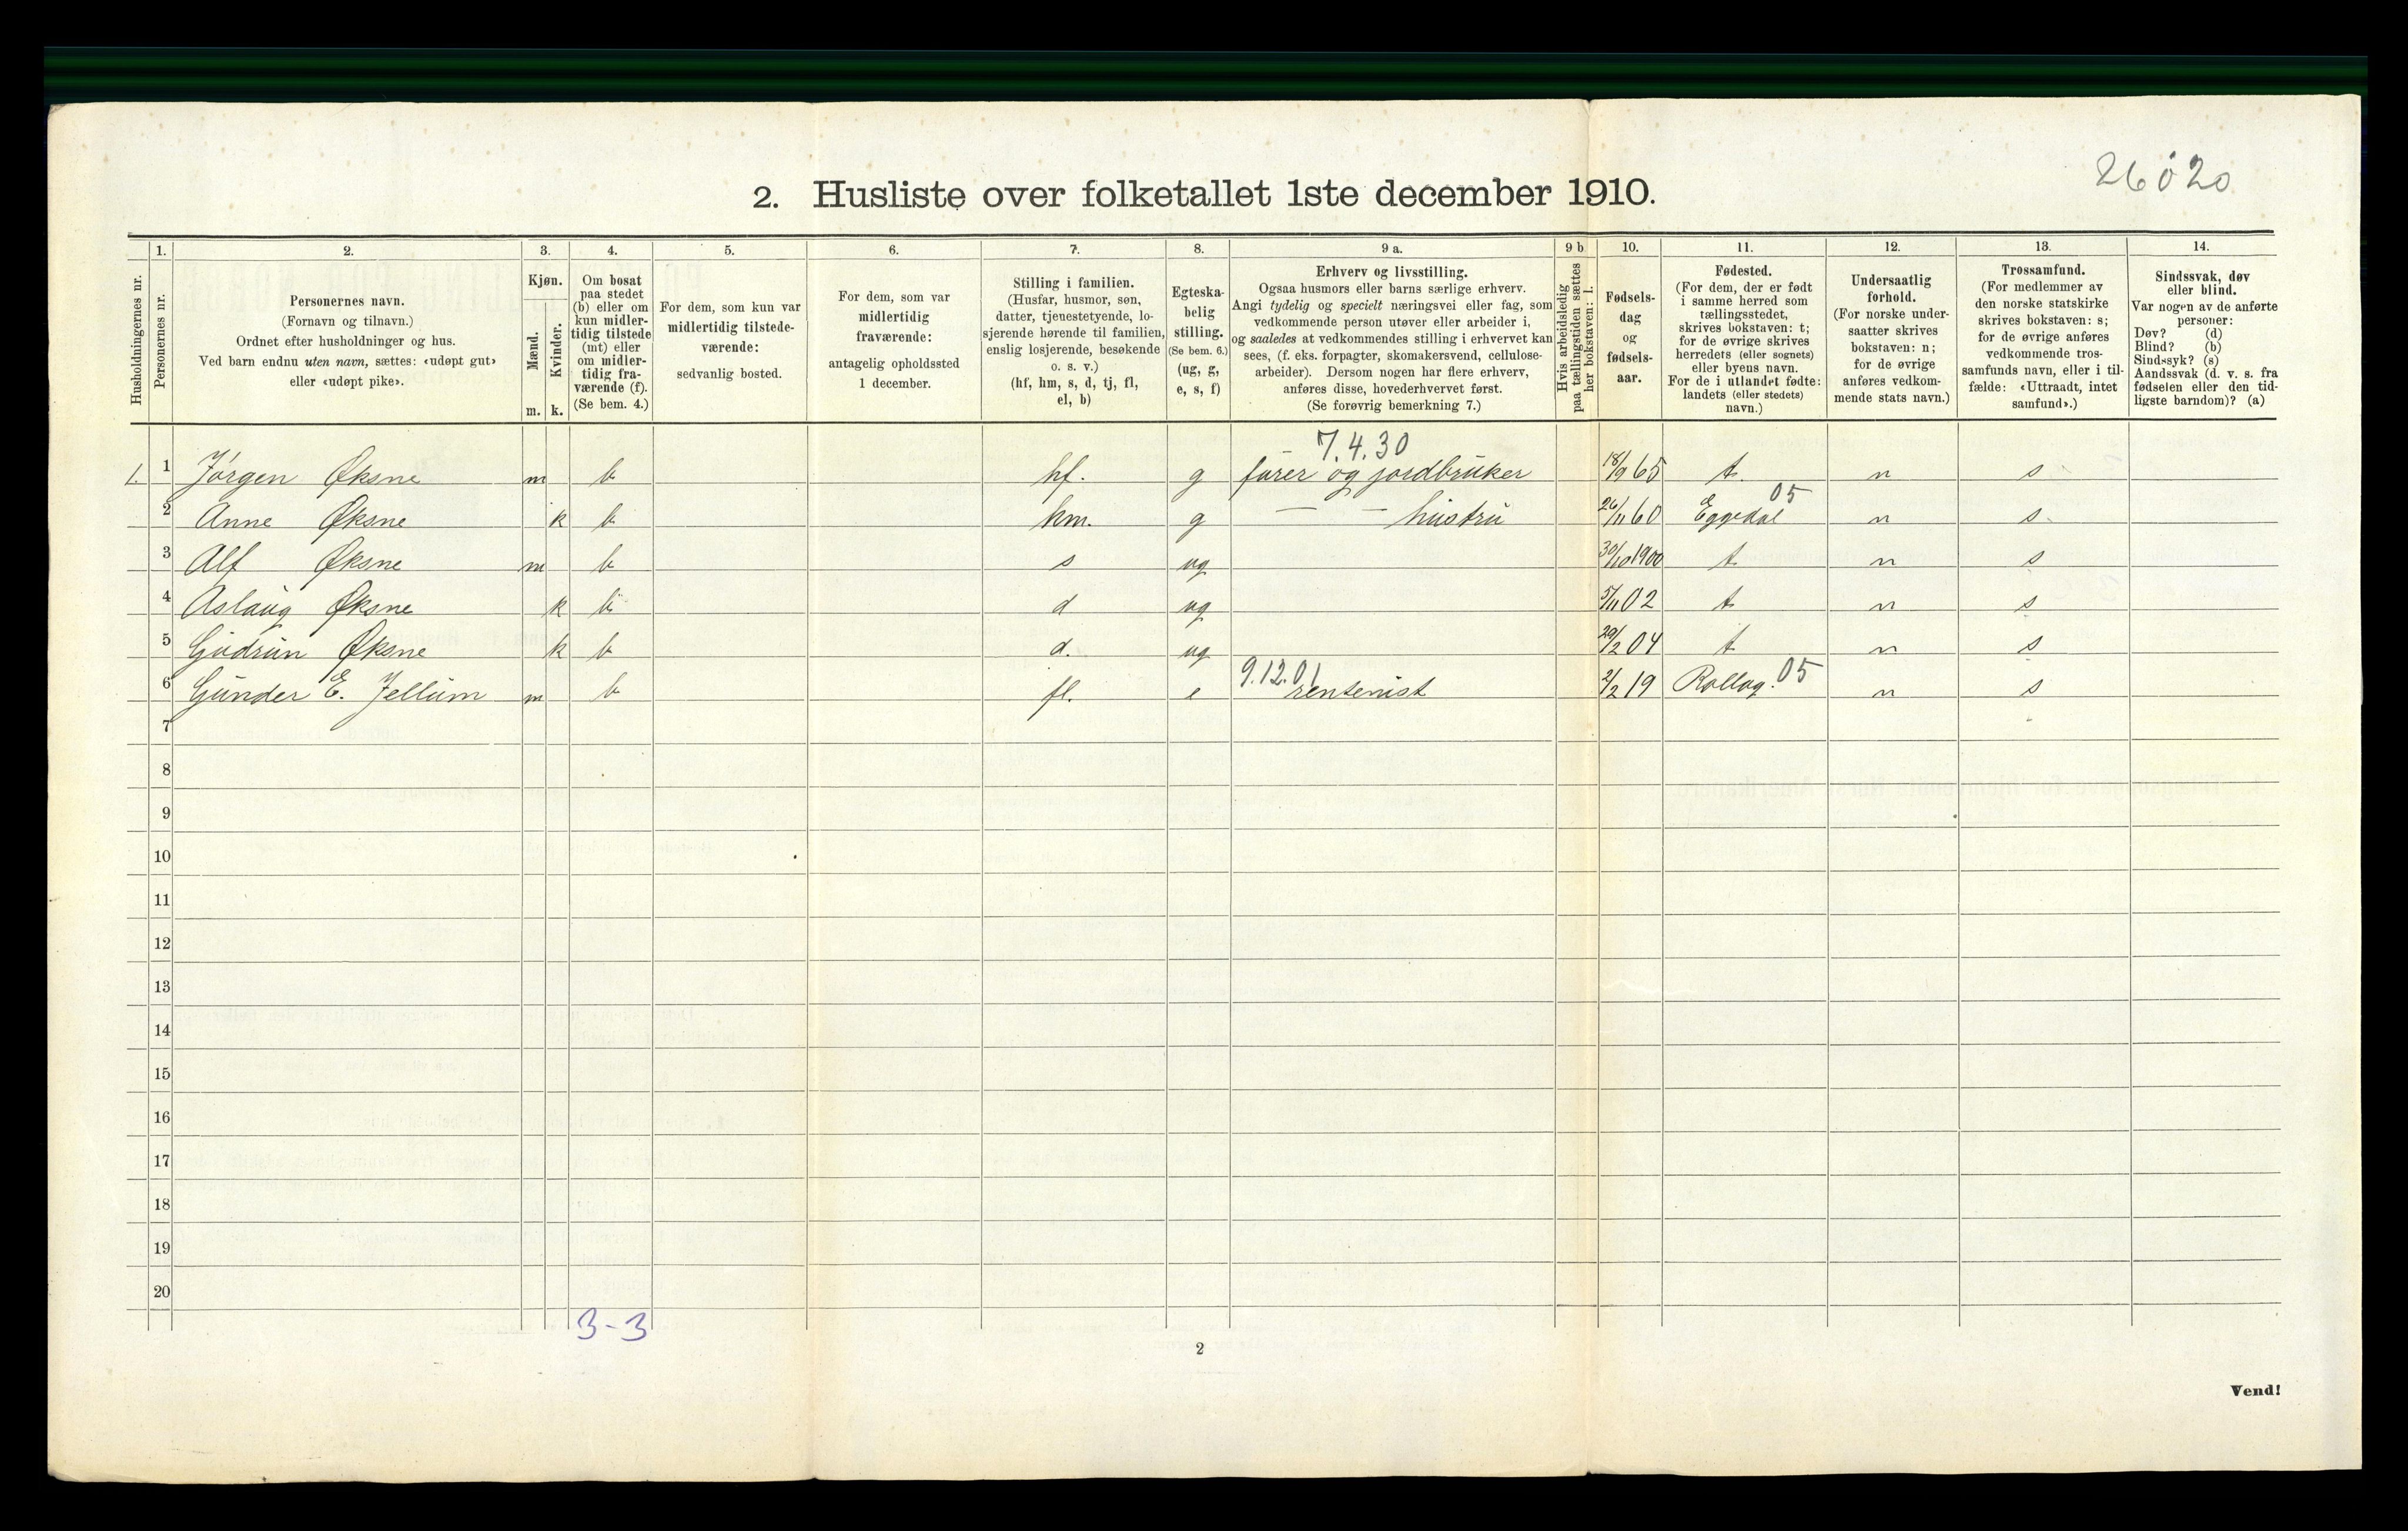 26020
2. Husliste over folketallet 1ste december 1910.
1. 2. 3. 4. 5. 6. 7. 8. 9 a. 9 b 10. 11. 12. 13. 14.
Husholdningernes nr.
Personernes nr.
Personernes navn.
(Fornavn og tilnavn.)
Ordnet efter husholdninger og hus.
Ved barn endnu uten navn, sættes: «udøpt gut»
eller «udøpt pike».
Kjøn.
Mænd.
Kvinder.
m. k.
Om bosat
paa stedet
(b) eller om
kun midler-
tidig tilstede
(mt) eller
om midler-
tidig fra-
værende (f).
(Se bem. 4.)
For dem, som kun var
midlertidig tilstede-
værende:
sedvanlig bosted.
For dem, som var
midlertidig
fraværende:
antagelig opholdssted
1 december.
Stilling i familien.
(Husfar, husmor, søn,
datter, tjenestetyende, lo-
sjerende hørende til familien,
enslig losjerende, besøkende
o. s. v.)
(hf, hm, s, d, tj, fl,
el, b)
Egteska-
belig
stilling.
(Se bem. 6.)
(ug, g,
e, s, f)
Erhverv og livsstilling.
Ogsaa husmors eller barns særlige erhverv.
Angi tydelig og specielt næringsvei eller fag, som
vedkommende person utøver eller arbeider i,
og saaledes at vedkommendes stilling i erhvervet kan
sees, (f. eks. forpagter, skomakersvend, cellulose-
arbeider). Dersom nogen har flere erhverv,
anføres disse, hovederhvervet først.
(Se forøvrig bemerkning 7.)
Hvis arbeidsledig
paa tællingstiden sættes
her bokstaven: l.
Fødsels-
dag
og
fødsels-
aar.
Fødested.
(For dem, der er født
i samme herred som
tællingsstedet,
skrives bokstaven: t;
for de øvrige skrives
herredets (eller sognets)
eller byens navn.
For de i utlandet fødte:
landets (eller stedets)
navn.)
Undersaatlig
forhold.
(For norske under-
saatter skrives
bokstaven: n;
for de øvrige
anføres vedkom-
mende stats navn.)
Trossamfund.
(For medlemmer av
den norske statskirke
skrives bokstaven: s;
for de øvrige anføres
vedkommende tros-
samfunds navn, eller i til-
fælde: «Uttraadt, intet
samfund».)
Sindssvak, døv
eller blind.
Var nogen av de anførte
personer:
Døv? (d)
Blind? (b)
Sindssyk? (s)
Aandssvak (d. v. s. fra
fødselen eller den tid-
ligste barndom)? (a)
7.4.30
1. 1 Jörgen Øksne m b hf. g fører og jordbruker 18/9 65 t. n s
2 Anne Øksne k b hm. g — — hustru 26/11 60 Eggedal 05 n s
3 Alf Øksne m b s ug 30/10 1900 t n s
4 Aslaug Øksne k b d ug 5/11 02 t n s
5 Gudrun Øksne k b d. ug 29/2 04 t n s
9.12.01
6 Gunder E. Jellum m b fl. e rentenist 2/2 19 Rollag. 05 n s
7
8
9
10
11
12
13
14
15
16
17
18
19
20
3-3
2
Vend!